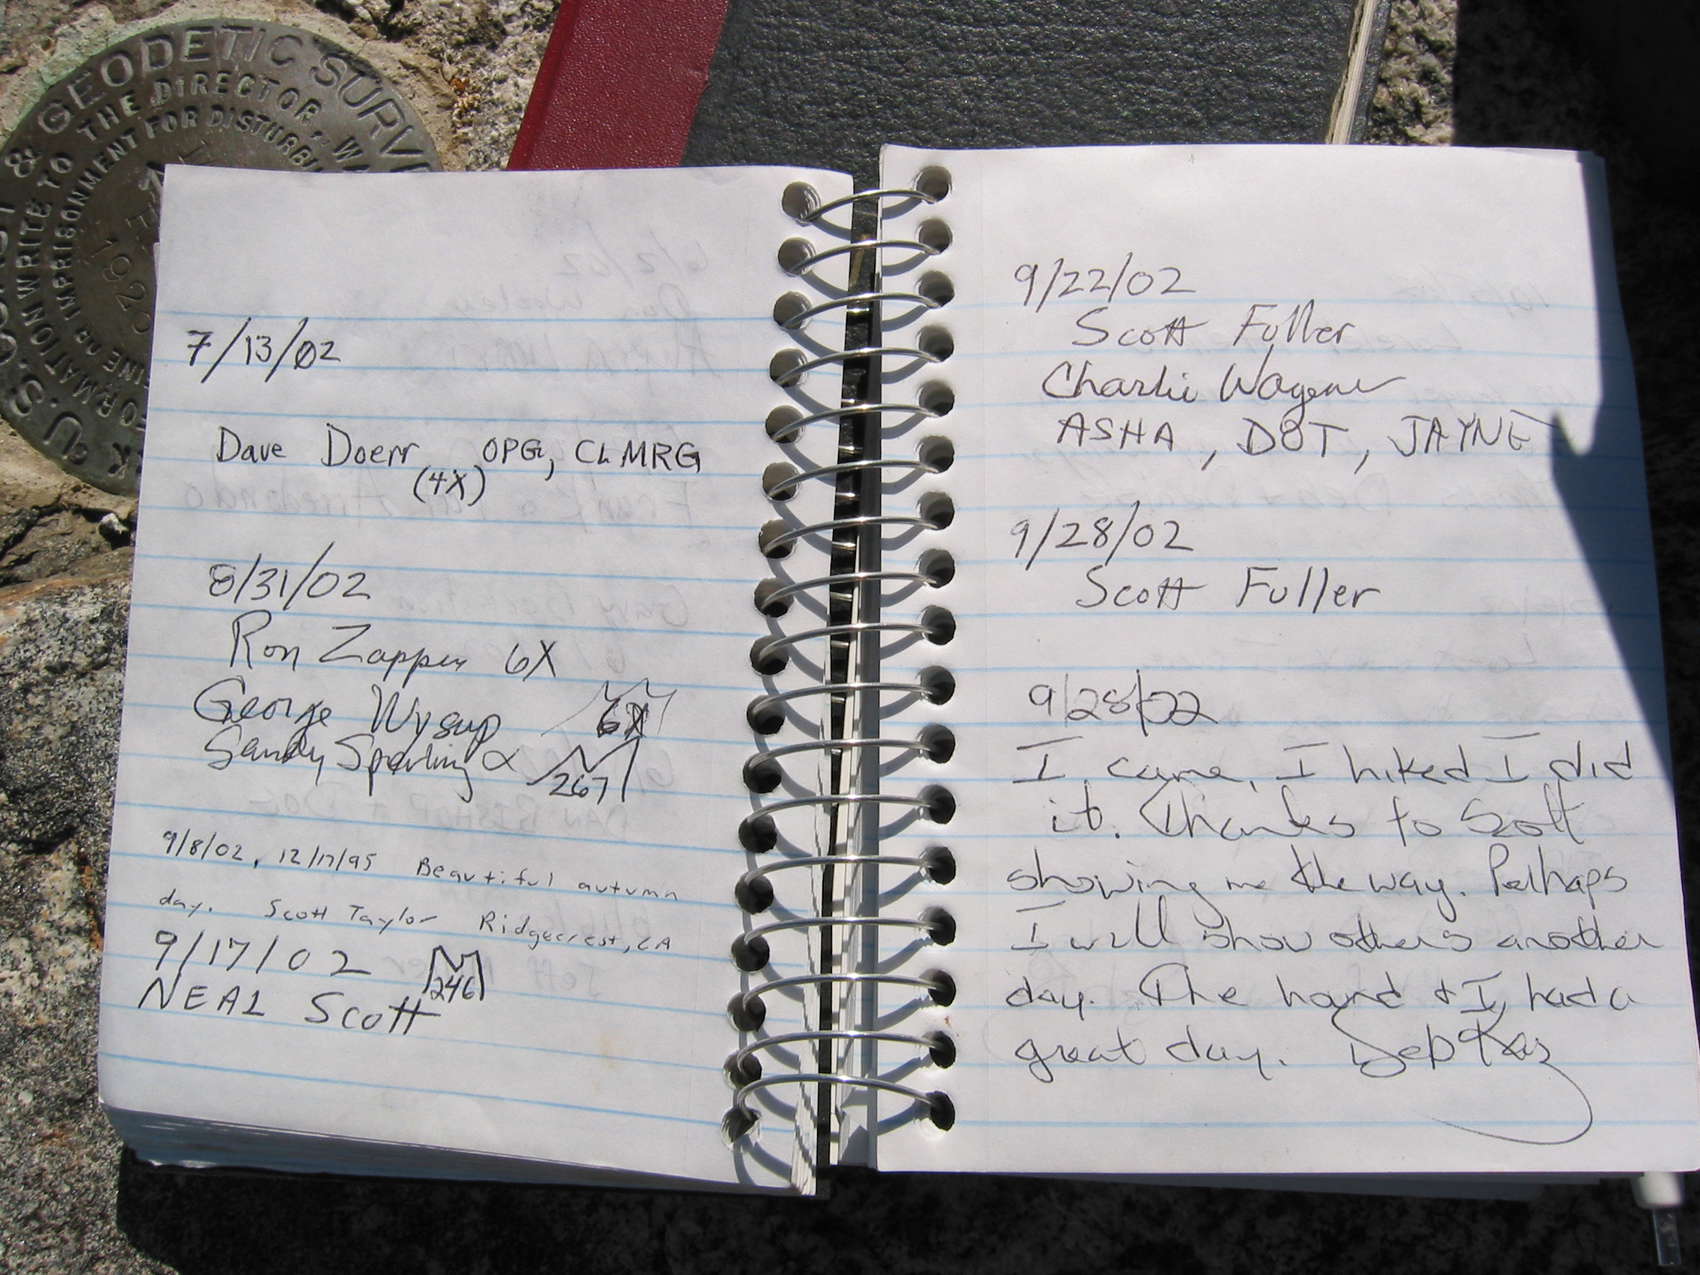 U.S. COAST & GEODETIC SURVEY
INFORMATION WRITE TO THE DIRECTOR, WA
FINE OR IMPRISONMENT FOR DISTURBI
192
7/13/02
Dave Doerr OPG, CLMRG
(4X)
8/31/02
Ron Zappen 6X
George Wysup 6X
Sandy Sperling 267
9/8/02, 12/17/95 Beautiful autumn
day. Scott Taylor Ridgecrest, CA
9/17/02
246
NEAL Scott
9/22/02
Scott Fuller
Charlie Wagener
ASHA, DOT, JAYNE
9/28/02
Scott Fuller
9/28/02
I came, I hiked I did
it. Thanks to Scott
showing me the way. Perhaps
I will show others another
day. The hound & I had a
great day.